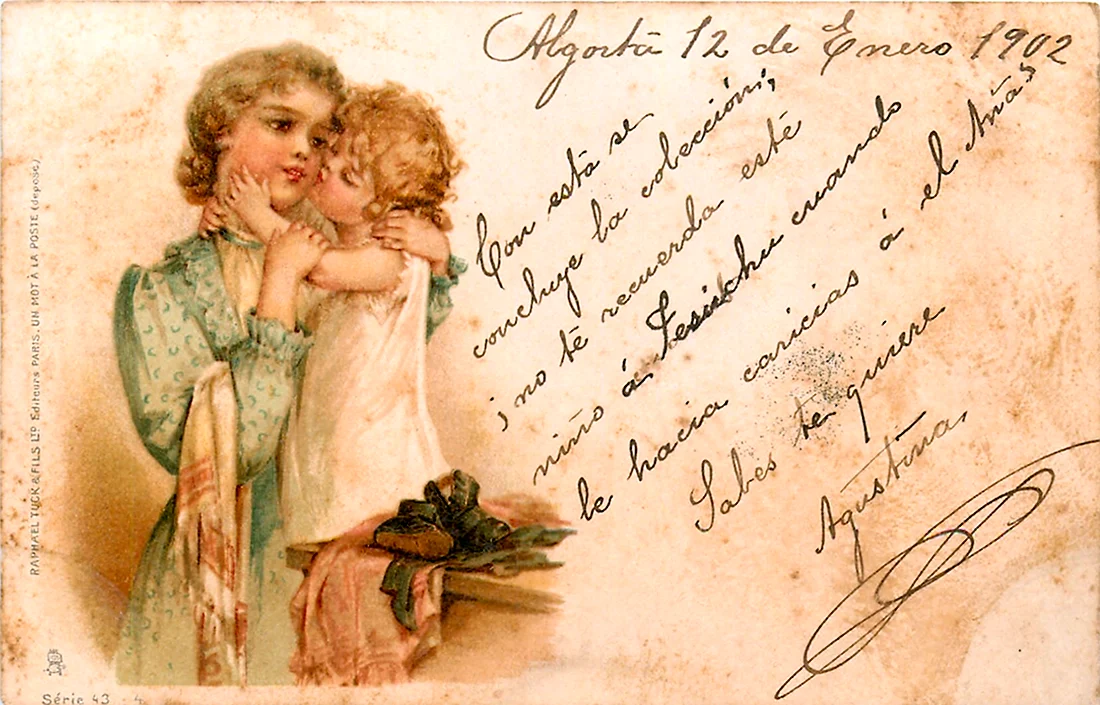 Algortà 12 de Enero 1902
Con està se
concluye la colección;
¡no tè recuerda estè
niño á cuando
le hacia caricias á el Añá?
Sabes te quiere
Agustina.
RAPHAEL TUCK & FILS LTD Editeurs PARIS. UN MOT À LA POSTE (déposé)
Série 43 - 4